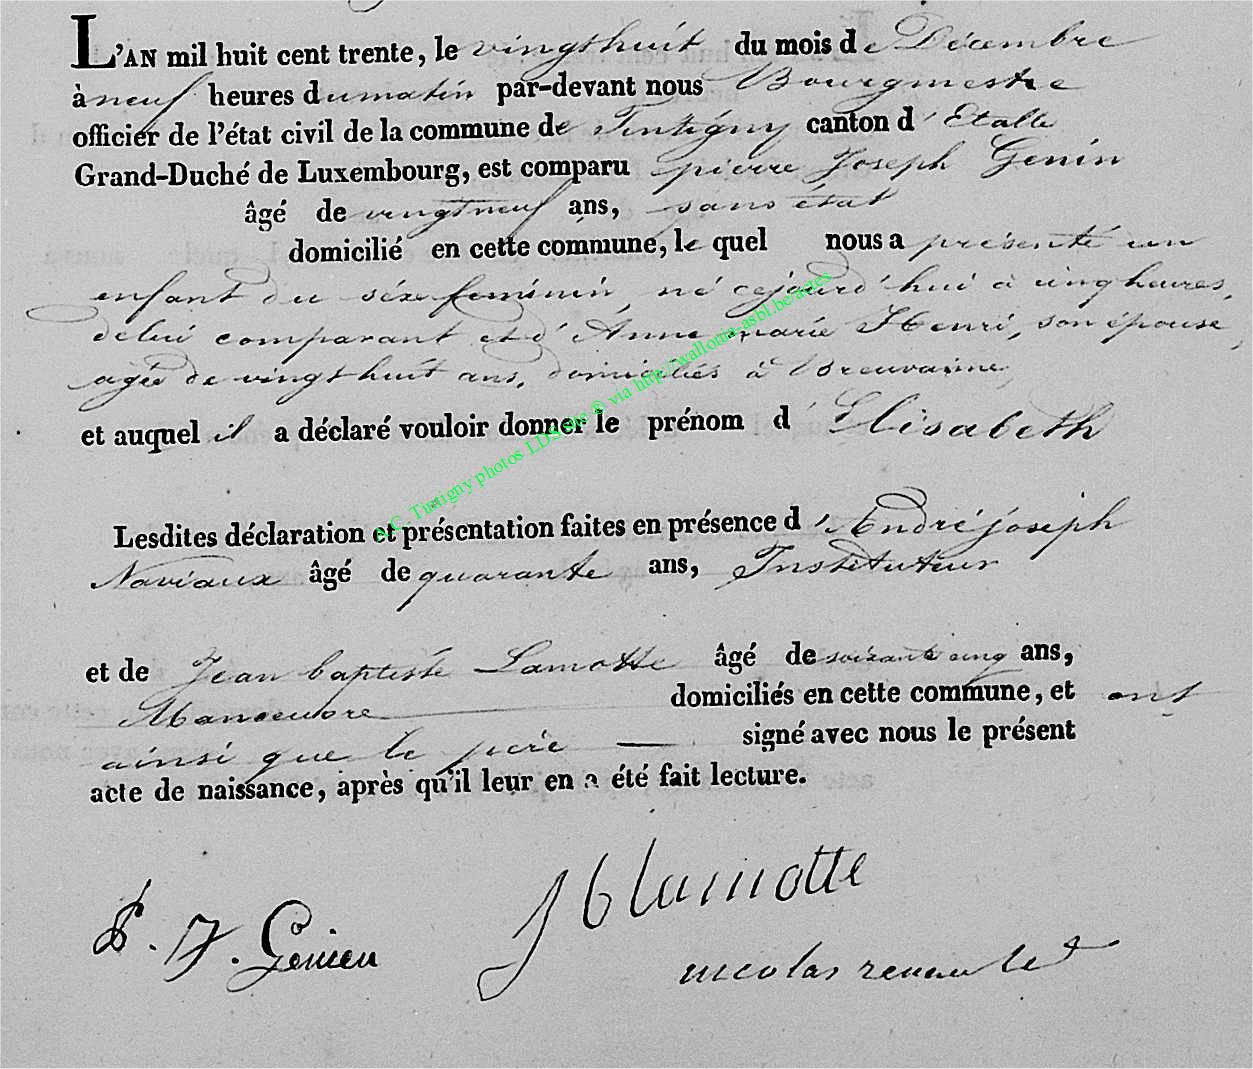 L'AN mil huit cent trente, le vingthuit du mois de Décembre
à neuf heures du matin par-devant nous Bourgmestre
officier de l'état civil de la commune de Tintigny canton d'Etalle
Grand-Duché de Luxembourg, est comparu pierre Joseph Genin
âgé de vingtneuf ans, sans état
domicilié en cette commune, le quel nous a présenté un
enfant du séxe feminin, né cejourd'hui à cinq heures,
de lui comparant et d'Anne marie Henri, son épouse,
agée de vingthuit ans, domiciliés à Breuvanne,
et auquel il a déclaré vouloir donner le prénom d'Elisabeth
A.C. Tintigny photos LDS site © via http://wallonia-asbl.be/actes
Lesdites déclaration et présentation faites en présence d'André joseph
Naviaux âgé de quarante ans, Instituteur
et de Jean baptiste Lamotte âgé de soixante cinq ans,
Manoeuvre domiciliés en cette commune, et ont
ainsi que le père signé avec nous le présent
acte de naissance, après qu'il leur en a été fait lecture.
J b lamotte
P. J. Genien
nicolas